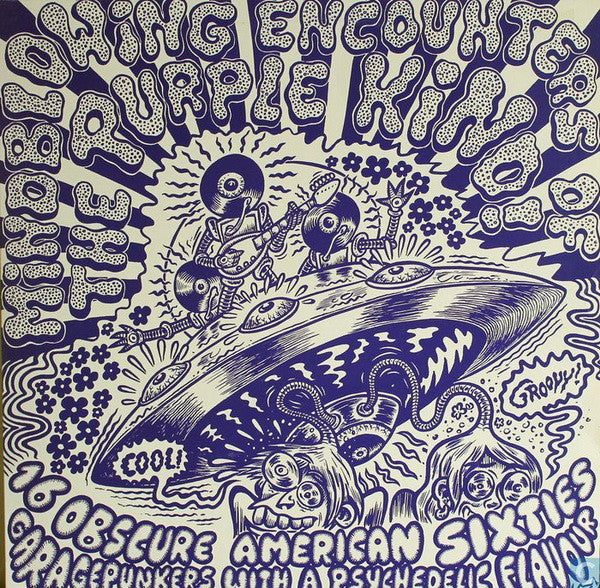 MINDBLOWING ENCOUNTERS OF
THE PURPLE KIND
GROOVY!
COOL!
16 OBSCURE AMERICAN SIXTIES
GARAGEPUNKERS WITH A PSYCHEDELIC FLAVOUR